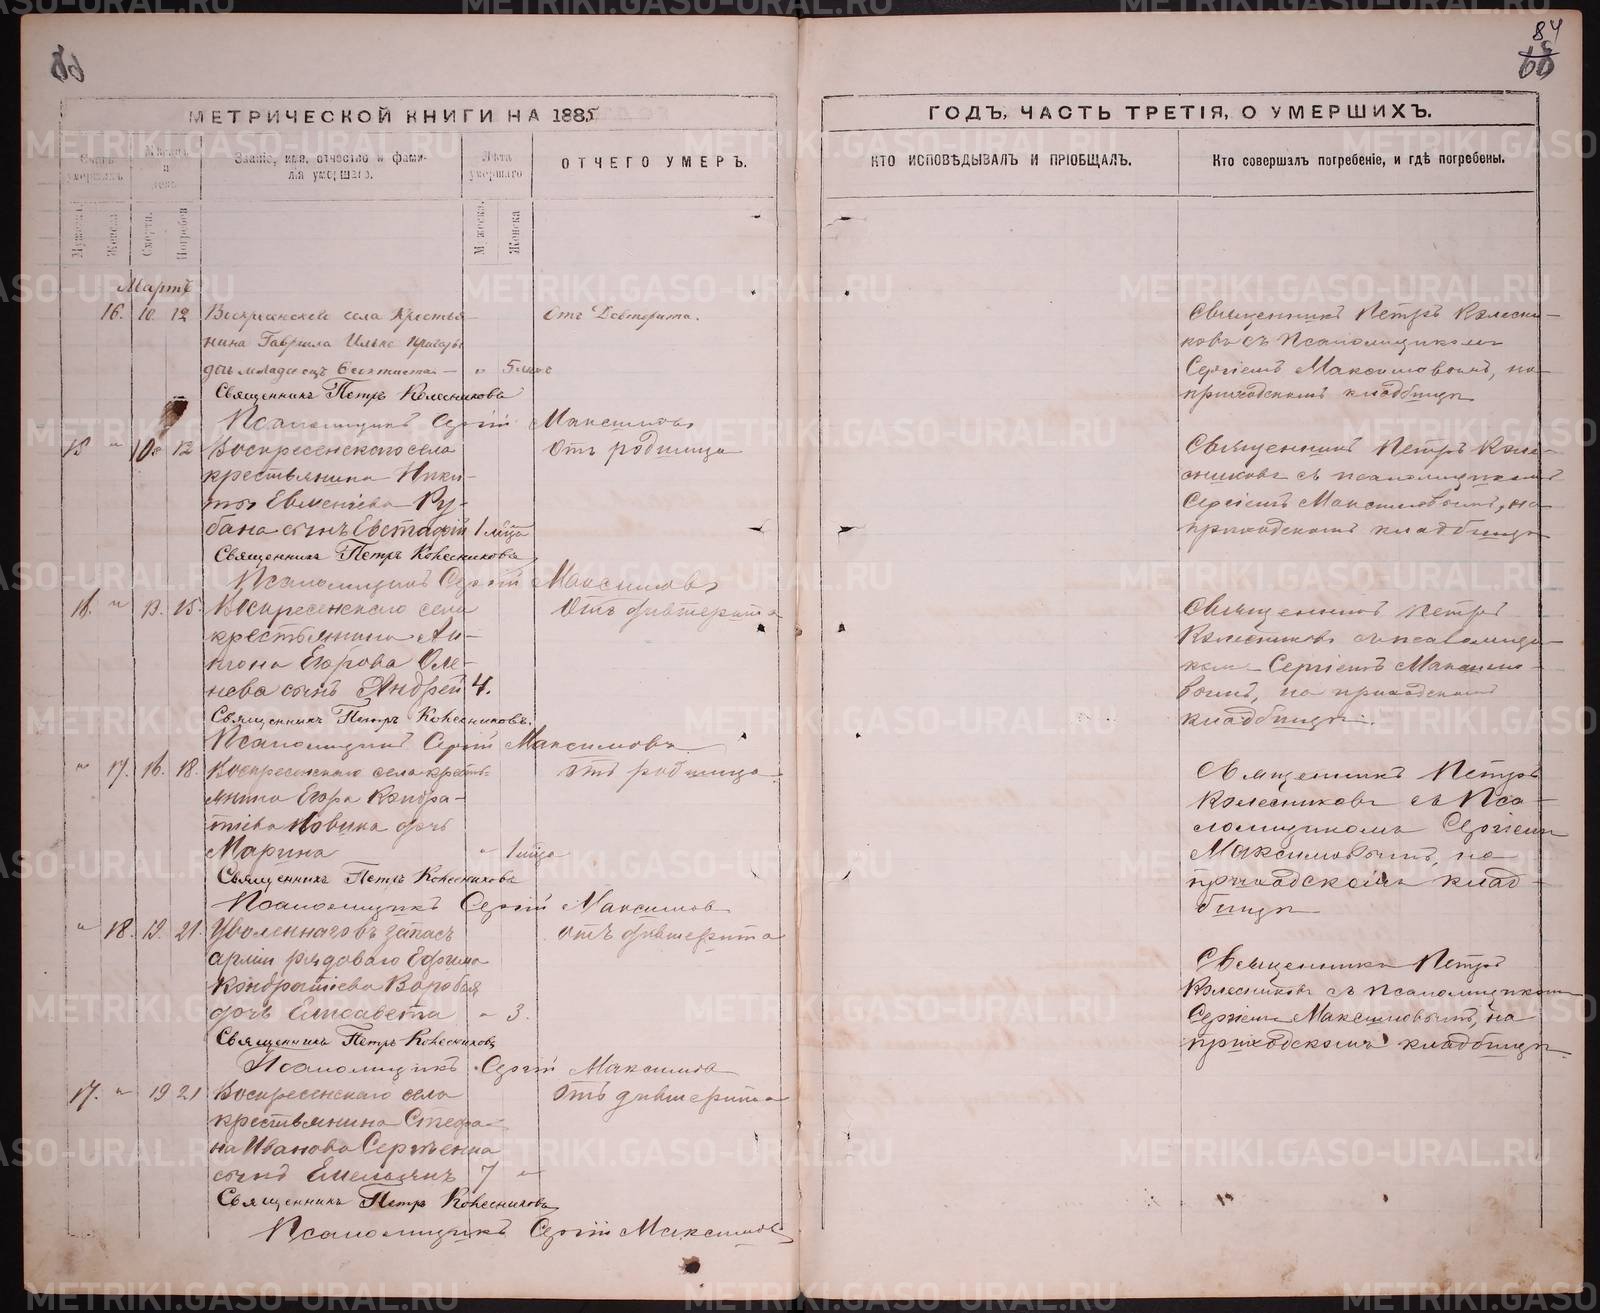 84
66
МЕТРИЧЕСКОЙ КНИГИ НА 1885
ГОДЪ, ЧАСТЬ ТРЕТІЯ, О УМЕРШИХЪ.
Счетъ умершихъ.
Мѣсяцъ и день.
Званіе, имя, отчество и фами-
лія умершаго.
Лѣта умершаго
ОТЧЕГО УМЕРЪ.
КТО ИСПОВѢДЫВАЛЪ И ПРІОБЩАЛЪ.
Кто совершалъ погребеніе, и гдѣ погребены.
Мужеска.
Женска
Смерти.
Погребен
Мужеска.
Женска
Мартъ
16. 10 12 Воскресенскаго села Крестья-
нина Гавріила
дочь
Отъ Дифтерита.
Священникъ Петръ Колесниковъ
Псаломщикъ Сергій Максимовъ
Священникъ Петръ Колесни-
ковъ съ Псаломщикомъ
Сергіемъ Максимовымъ, на
приходскомъ кладбищѣ
15 " 10 12 Воскресенскаго села
крестьянина Ники-
ты Евменіева Ру-
бана сынъ Евстафій 1 мѣсяца
Отъ родимца
Священникъ Петръ Колесниковъ
Псаломщикъ Сергій Максимовъ
Священникъ Петръ Коле-
сниковъ съ псаломщикомъ
Сергіемъ Максимовымъ, на
приходскомъ кладбищѣ
16. " 13. 15. Воскресенскаго села
крестьянина Ан-
тона Егорова Оле-
нева сынъ Андрей 4.
Отъ дифтерита
Священникъ Петръ Колесниковъ.
Псаломщикъ Сергій Максимовъ
Священникъ Петръ
Колесниковъ съ псаломщи-
комъ Сергіемъ Максимо-
вымъ, на приходскомъ
кладбищѣ.
" 17. 16. 18. Воскресенскаго села кресть-
янина Егора Кондра-
тіева Новика дочь
Марина " 1 мѣсяца
Отъ родимца.
Священникъ Петръ Колесниковъ
Псаломщикъ Сергій Максимовъ
Священникъ Петръ
Колесниковъ съ Пса-
ломщикомъ Сергіемъ
Максимовымъ, на
приходскомъ клад-
бищѣ
" 18. 19. 21. Уволеннаго въ запасъ
арміи рядоваго Ефима
Кондратіева Воробья
дочь Елисавета " 3.
Отъ дифтерита
Священникъ Петръ Колесниковъ
Псаломщикъ Сергій Максимовъ
Священникъ Петръ
Колесниковъ съ псаломщикомъ
Сергіемъ Максимовымъ, на
приходскомъ кладбищѣ.
17. " 19 21 Воскресенскаго села
крестьянина Стефа-
на Иванова Сергѣенка
сынъ Емельянъ 7 "
Отъ дифтерита
Священникъ Петръ Колесниковъ
Псаломщикъ Сергій Максимовъ
METRIKI.GASO-URAL.RU